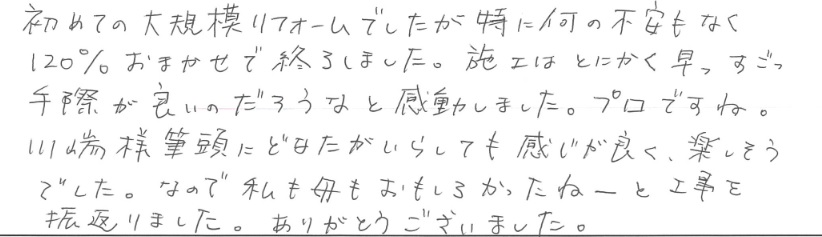 初めての大規模リフォームでしたが特に何の不安もなく
120%おまかせで終了しました。施工はとにかく早っすごっ
手際が良いのだろうなと感動しました。プロですね。
川端様筆頭にどなたがいらしても感じが良く、楽しそう
でした。なので私も母もおもしろかったねーと工事を
振返りました。ありがとうございました。